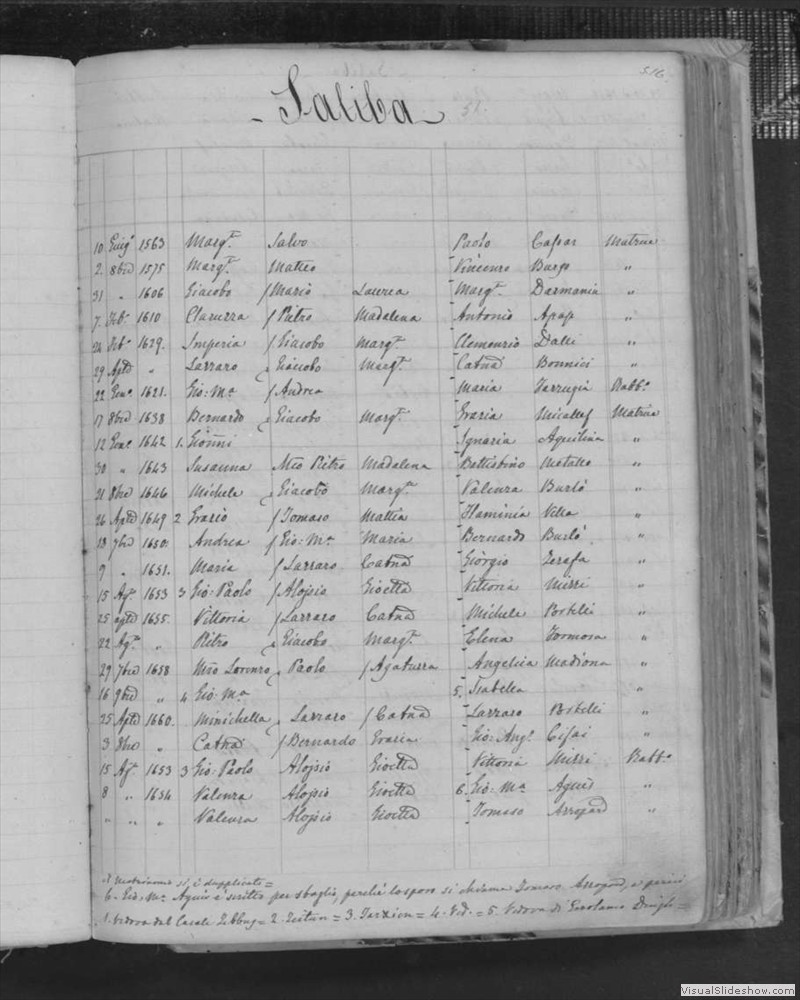 516.
Saliba 51.
10 Giug.o 1563 Marg.ta Salvo Paolo Caspar Matrice
2. 8bre 1575 Marg.ta Matteo Vincenzo Burg. "
31 " 1606 Giacobo / Mario Laurea Marg.ta Darmania "
7. Feb.o 1610 Claruzza / Pietro Madalena Antonio Apap "
24 Feb.o 1629. Imperia / Giacobo Marg.ta Clemenzio Dalli "
29 Aple " Lazzaro Giacobo Marg.ta Catna Bonnici "
22 Gen.o 1621. Gio: Ma / Andrea Maria Farrugia Rabb.o
17 8bre 1638 Bernardo Giacobo Marg.ta Grazia Micallef Matrice
12 Gen.o 1642 1. Gionni Ignazia Aquilina "
30 " 1643 Susanna Mro Pietro Madalena Battistino "
21 8bre 1646 Michele Giacobo Marg.ta Valenza Burlò "
26 Aple 1649 2 Grazio / Tomaso Mattia Flaminia Vella "
18 7bre 1650. Andrea / Gio: Ma Maria Bernardo Burlò "
9 " 1651. Maria / Lazzaro Catna Giorgio Zerafa "
15 Ag.o 1653 3 Gio: Paolo / Alojsio Gioetta Vittoria Mizzi "
25 1655. Vittoria / Lazzaro Catna Michele Portelli "
22 Ag.o " Pietro Giacobo Marg.ta Elena Formosa "
29 7bre 1658 Mro Lorenzo Paolo / Agatuzza Angelica Madiona "
16 9bre " 4 Gio: Ma 5. Isabella "
25 Aple 1660. Minichella Lazzaro / Catna Lazzaro Portelli "
3 8bre " Catna / Bernardo Grazia Gio: Ang.o Cifai "
15 Ag.o 1653 3 Gio: Paolo Alojsio Gioetta Vittoria Mizzi Rabb.o
8 " 1654 Valenza Alojsio Gioetta 6. Gio: Ma Aquis "
" " " Valenza Alojsio Gioetta Tomaso Arropard "
il matrimonio si è dupplicato =
6. Gio: Ma Aquis è scritto per sbaglio, perchè lo sposo si chiama Tomaso Arropard,
1. Vedova dal Casale Zebbug = 2. Zeitun = 3. Tarxien = 4. Ved. = 5. Vedova di Girolamo Dingli =
VisualSlideshow.com